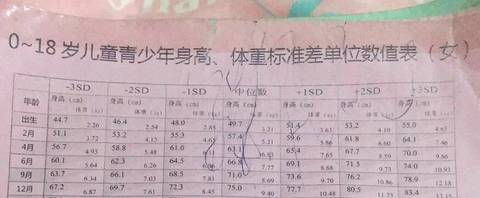 0~18岁儿童青少年身高、体重标准差单位数值表（女）
-3SD -2SD -1SD 中位数 +1SD +2SD +3SD
年龄 身高 (cm) 体重 (kg) 身高 (cm) 体重 (kg) 身高 (cm) 体重 (kg) 身高 (cm) 体重 (kg) 身高 (cm) 体重 (kg) 身高 (cm) 体重 (kg) 身高 (cm) 体重 (kg)
出生 44.7 2.26 46.4 2.54 48.0 2.85 49.7 3.21 51.4 3.63 53.2 4.10 55.0 4.65
2月 51.1 3.72 53.2 4.15 55.3 4.65 57.4 5.21 59.6 5.86 61.8 6.60 64.1 7.46
4月 56.7 4.93 58.8 5.48 61.0 6.11 63.1 6.83 65.4 7.65 67.7 8.59 70.0 9.66
6月 60.1 5.64 62.3 6.26 64.5 66.8 7.77 69.1 8.68 71.5 9.73 74.0 10.93
9月 63.7 6.34 66.1 7.03 68.5 7.81 71.0 8.69 73.6 9.70 76.2 10.86 78.9 12.18
12月 67.2 6.87 69.7 7.61 72.3 8.45 75.0 9.40 77.7 10.48 80.5 11.73 83.4 13.15